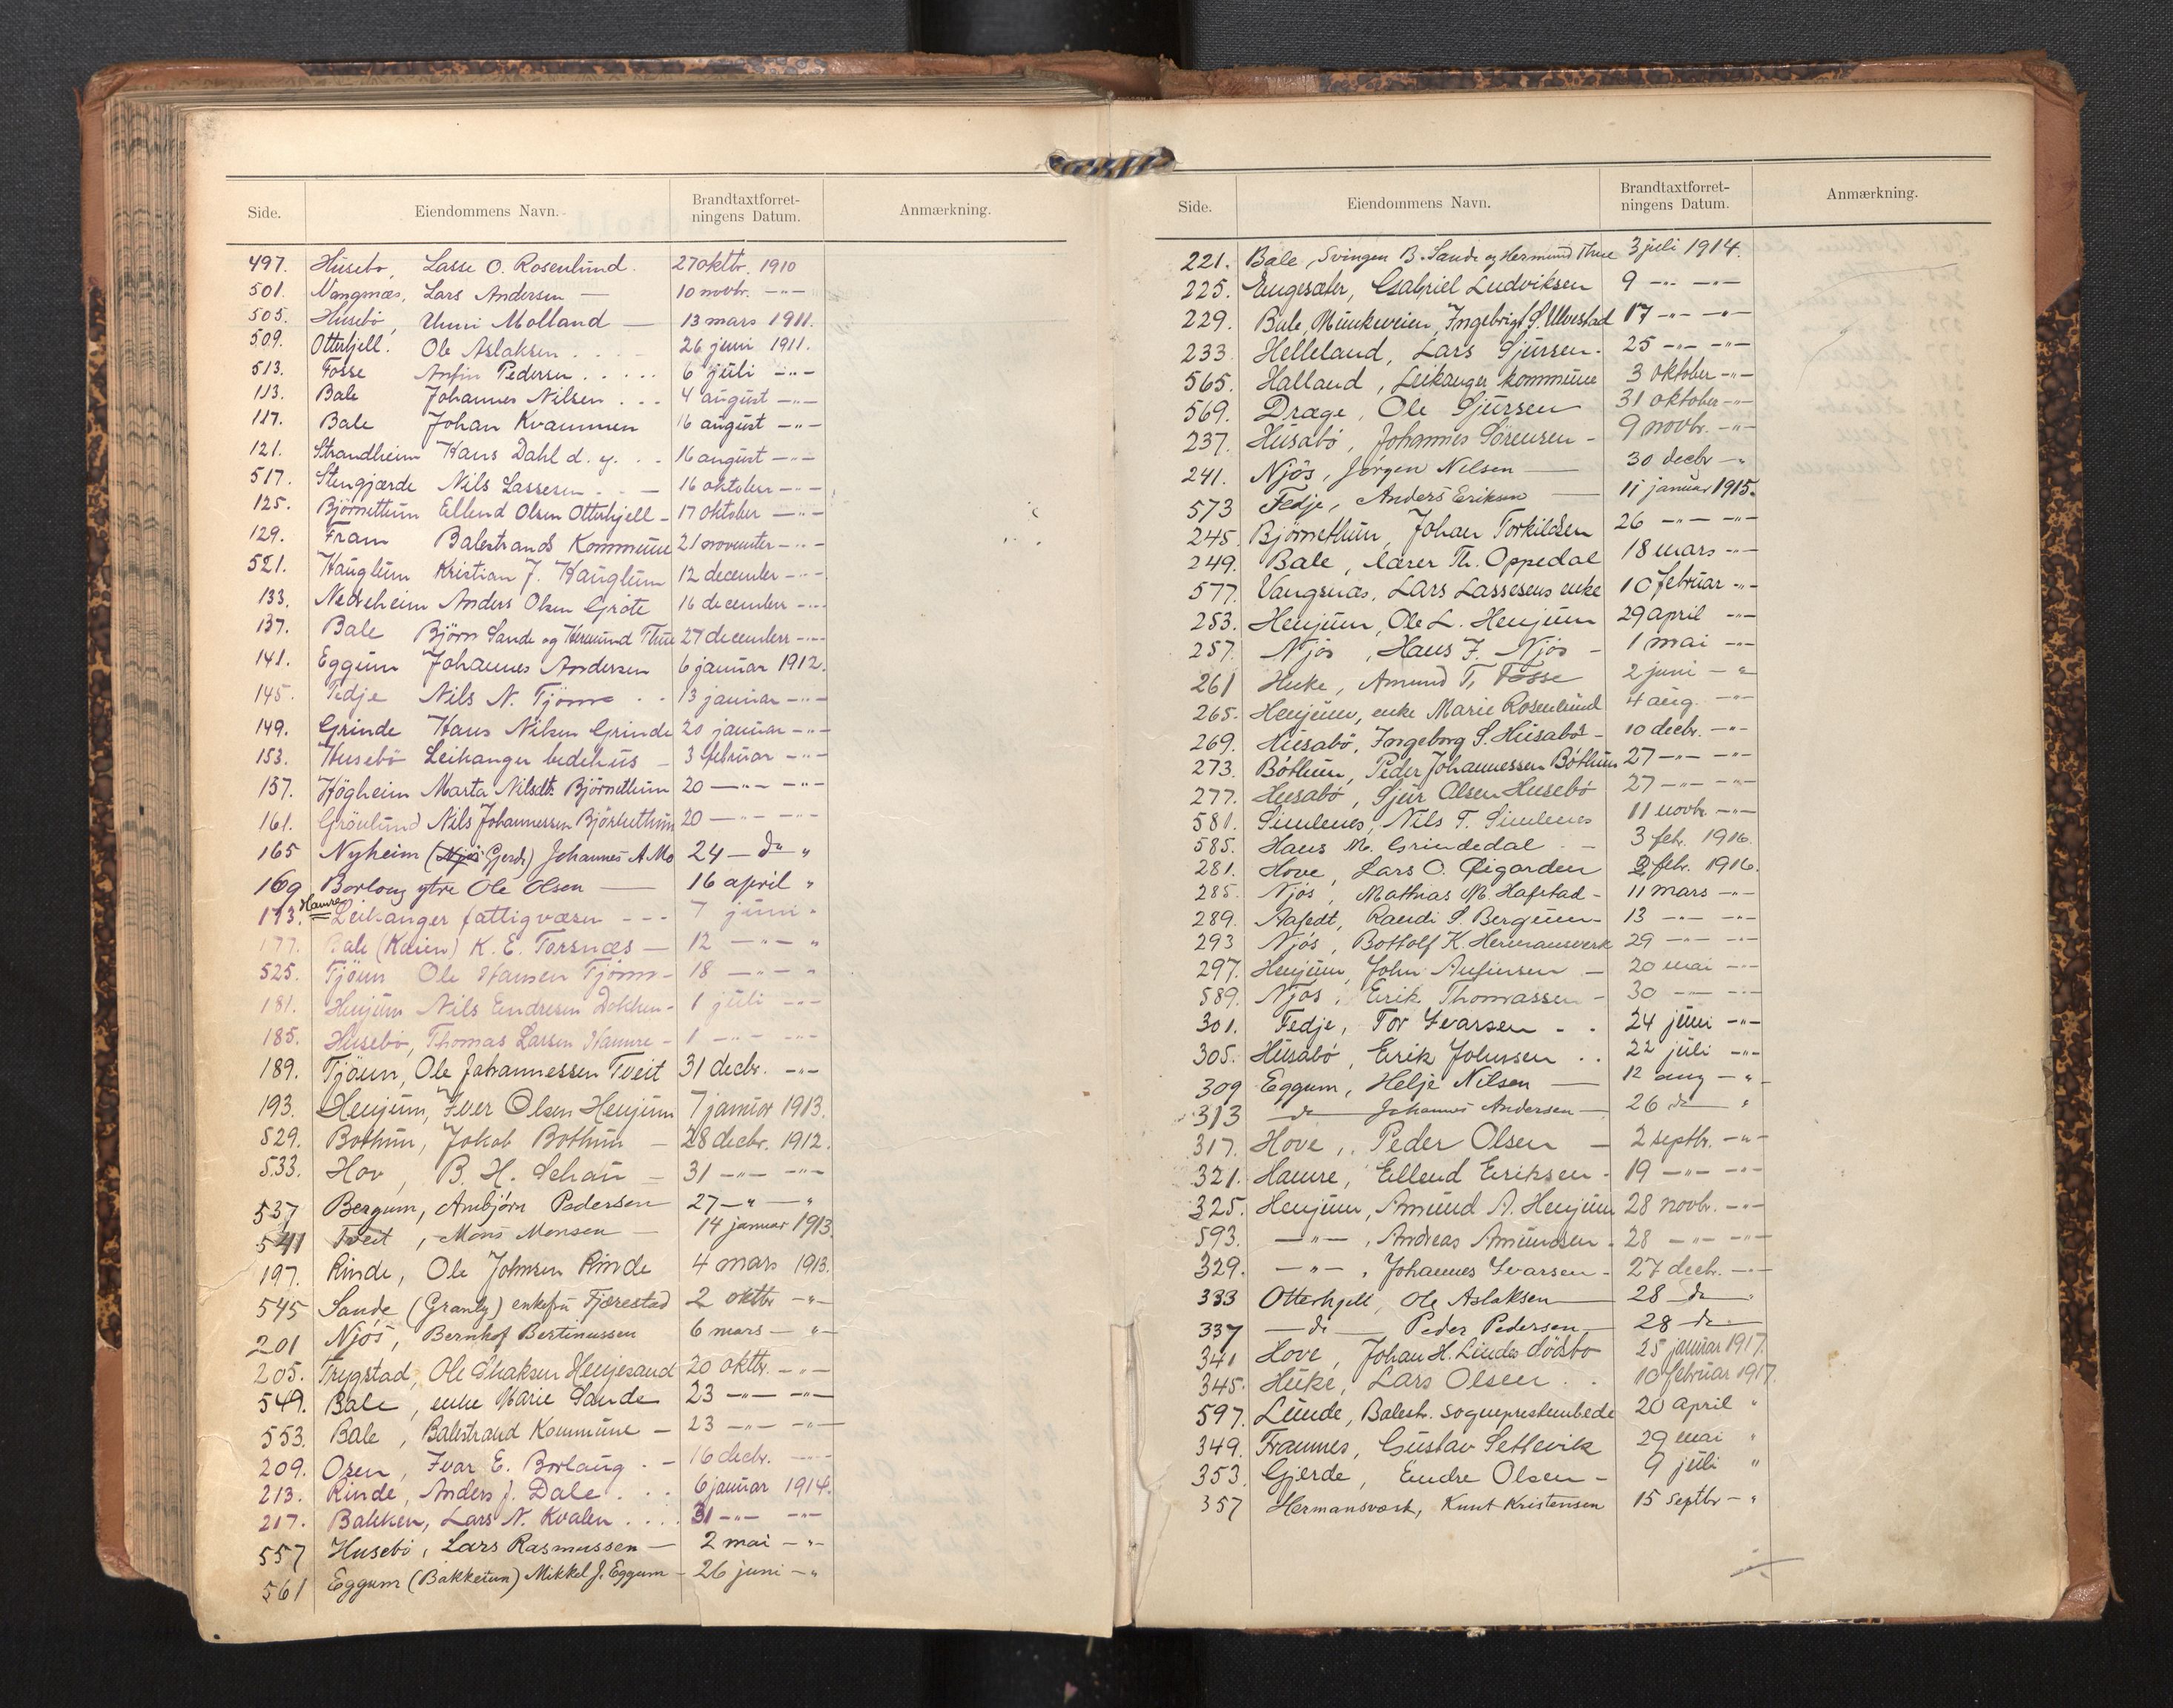 Side. Eiendommens Navn. Brandtaxtforret-
ningens Datum. Anmærkning.
497. Husebø, Lasse O. Rosenlund. 27 oktbr. 1910
501. Vangsnæs, Lars Andersen — 10 novbr. -"-
505. Husebö, Unni Molland — 13 mars 1911.
509. Otterhjell. Ole Aslaksen . . . 26 juni 1911.
513. Fosse Anfin Pedersen . . . . . 6 juli -"-
113. Bale Johannes Nilsen . . . 4 august -"-
117. Bale Johan Kvammen 16 august -"-
121. Strandheim Hans Dahl d. y. . . 16 august -"-
517. Stengjærde Nils Lassesen . . — 16 oktober -"-
125. Björnettun Ellend Olsen Otterhjell - 17 oktober -"-
129. Fram Balestrands Kommune 21 november -"-
521. Hauglum Kristian J. Hauglum 12 december -"-
133. Nedreheim Anders Olsen Gröte 16 december -"-
137. Bale Björn Sande og Hermund Thue 27 december -"-
141. Eggum Johannes Andersen 6 januar 1912.
145. Fedje Nils N. Tjönn . . 13 januar -"-
149. Grinde Hans Nilsen Grinde 20 januar -"-
153. Husebö Leikanger bedehus - 3 februar -"-
157. Högheim Marta Nilsdt. Björnetthun 20 -"- -"-
161. Grönlund Nils Johannessen Björnetthun 20 -"- -"-
165 Nyheim (Njøs Gjerde) Johannes A. Mo 24 - do "
169 Borlaug ytre Ole Olsen — 16 april "
Hamre
173. Leikanger fattigvæsen - - - 7 juni "
177. Bale (Kaien) K. E. Torsnæs — 12 -"- "
525. Tjönn Ole Hansen Tjönn - 18 -"- "
181. Henjum Nils Endresen Dokken - 1 juli -"-
185. Husebö, Thomas Larsen Hamre - 1 -"- -"-
189. Tjönn, Ole Johannessen Tveit 31 decbr. -"-
193. Henjum, Iver Olsen Henjum 7 januar 1913.
529. Bothun, Jakob Bothun — 28 decbr. 1912.
533. Hov, B. H. Schau — 31 -"- -"-
537 Bergum, Ambjørn Pedersen 27 -"- "
541 Tveit, Mons Monsen — 14 januar 1913.
197. Rinde, Ole Johnsen Rinde 4 mars 1913.
545 Sande (Granly) enkefru Fjærestad 2 oktbr -"-
201 Njøs, Bernhof Bertinussen 6 mars - "-
205. Trygstad, Ole Isaksen Henjesand 20 oktbr. -"-
549. Bale, enke Marie Sande 23 -"- -"-
553. Bale, Balestrand Kommune - 23 -"- -"-
209. Osen, Ivar E. Borlaug . - 16 decbr. -"-
213. Rinde, Anders J. Dale . . . 6 januar 1914.
217. Bakken, Lars N. Kvalen . . . . 31 -"- -"-
557 Husebö, Lars Rasmussen — 2 mai -"-
561 Eggum (Bakketun) Mikkel J. Eggum - 26 juni -"
Side. Eiendommens Navn. Brandtaxtforret-
ningens Datum. Anmærkning.
221. Bale, Svingen B. Sande og Hermund Thue 3 juli 1914.
225. Engesæter, Gabriel Ludviksen 9 -"- -"-
229. Bale, Munkeveien, Ingebrigt S. Ulvestad 17 -"- -"-
233. Helleland, Lars Sjursen. 25 -"- -"-
565. Halland, Leikanger kommune 3 oktober -"-
569. Dræge, Ole Sjursen 31 oktober -"-
237. Husabö, Johannes Sörensen - 9 novbr. -"-
241. Njös, Jørgen Nilsen — 30 decbr -"
573 Fedje, Anders Eriksen — 11 januar 1915.
245. Björnethun, Johan Torkildsen 26 -"- -"-
249. Bale, lærer Th. Oppedal 18 mars -"-
577. Vangsnæs, Lars Lassesens enke 10 februar -"-
253. Henjum, Ole L. Henjum 29 april -"-
257. Njös, Hans J. Njös - 1 mai -"-
261 Huke, Amund T. Fosse 2 juni - "
265. Henjum, enke Marie Rosenlund 4 aug. -"-
269. Husabö, Ingeborg S. Husabö - 10 decbr. -"-
273. Böthun, Peder Johannessen Böthun 27 -"- -"-
277. Husabö, Sjur Olsen Husebö 27 -"- -"-
581. Simlenes, Nils T. Simlenes 11 novbr -"-
585. Hans M. Grindedal . - 3 febr. 1916.
281. Hove, Lars O. Øigarden 3 febr. 1916.
285. Njös, Mathias M. Hafstad - 11 mars -"-
289. Aafedt, Randi S. Bergum - 13 -"- -"-
293 Njös, Bottolf K. Hermansverk 29 -"- -"-
297. Henjum, John Anfinsen - 20 mai -"-
589. Njös, Erik Thomassen - 30 -"- -"-
301. Fedje, Tor Ivarsen - . 24 juni -"-
305. Husabö, Erik Johnsen . . 22 juli -"-
309 Eggum, Helje Nilsen — 12 aug - "-
313 — do — Johannes Andersen — 26 do "
317. Hove, Peder Olsen - 2 septbr. -"-
321. Hamre, Ellend Eriksen - 19 -"- -"-
325. Henjum, Amund A. Henjum 28 novbr. -"-
593. -"-, Andreas Amundsen - 28 -"- -"-
329. -"-, Johannes Ivarsen - 27 decbr. -"-
333 Otterhjell, Ole Aslaksen — 28 do "
337 — do — Peder Pedersen — 28 do "
341 Hove, Johan H. Lindes dödsbo 25 januar 1917.
345. Huke, Lars Olsen . . 10 februar 1917.
597. Lunde, Balestr. sogneprestembede 20 april "
349. Framnes, Gustav Setlevik 29 mai "
353. Gjerde, Endre Olsen - 9 juli "
357 Hermansverk, Knut Kristensen 15 septbr - "